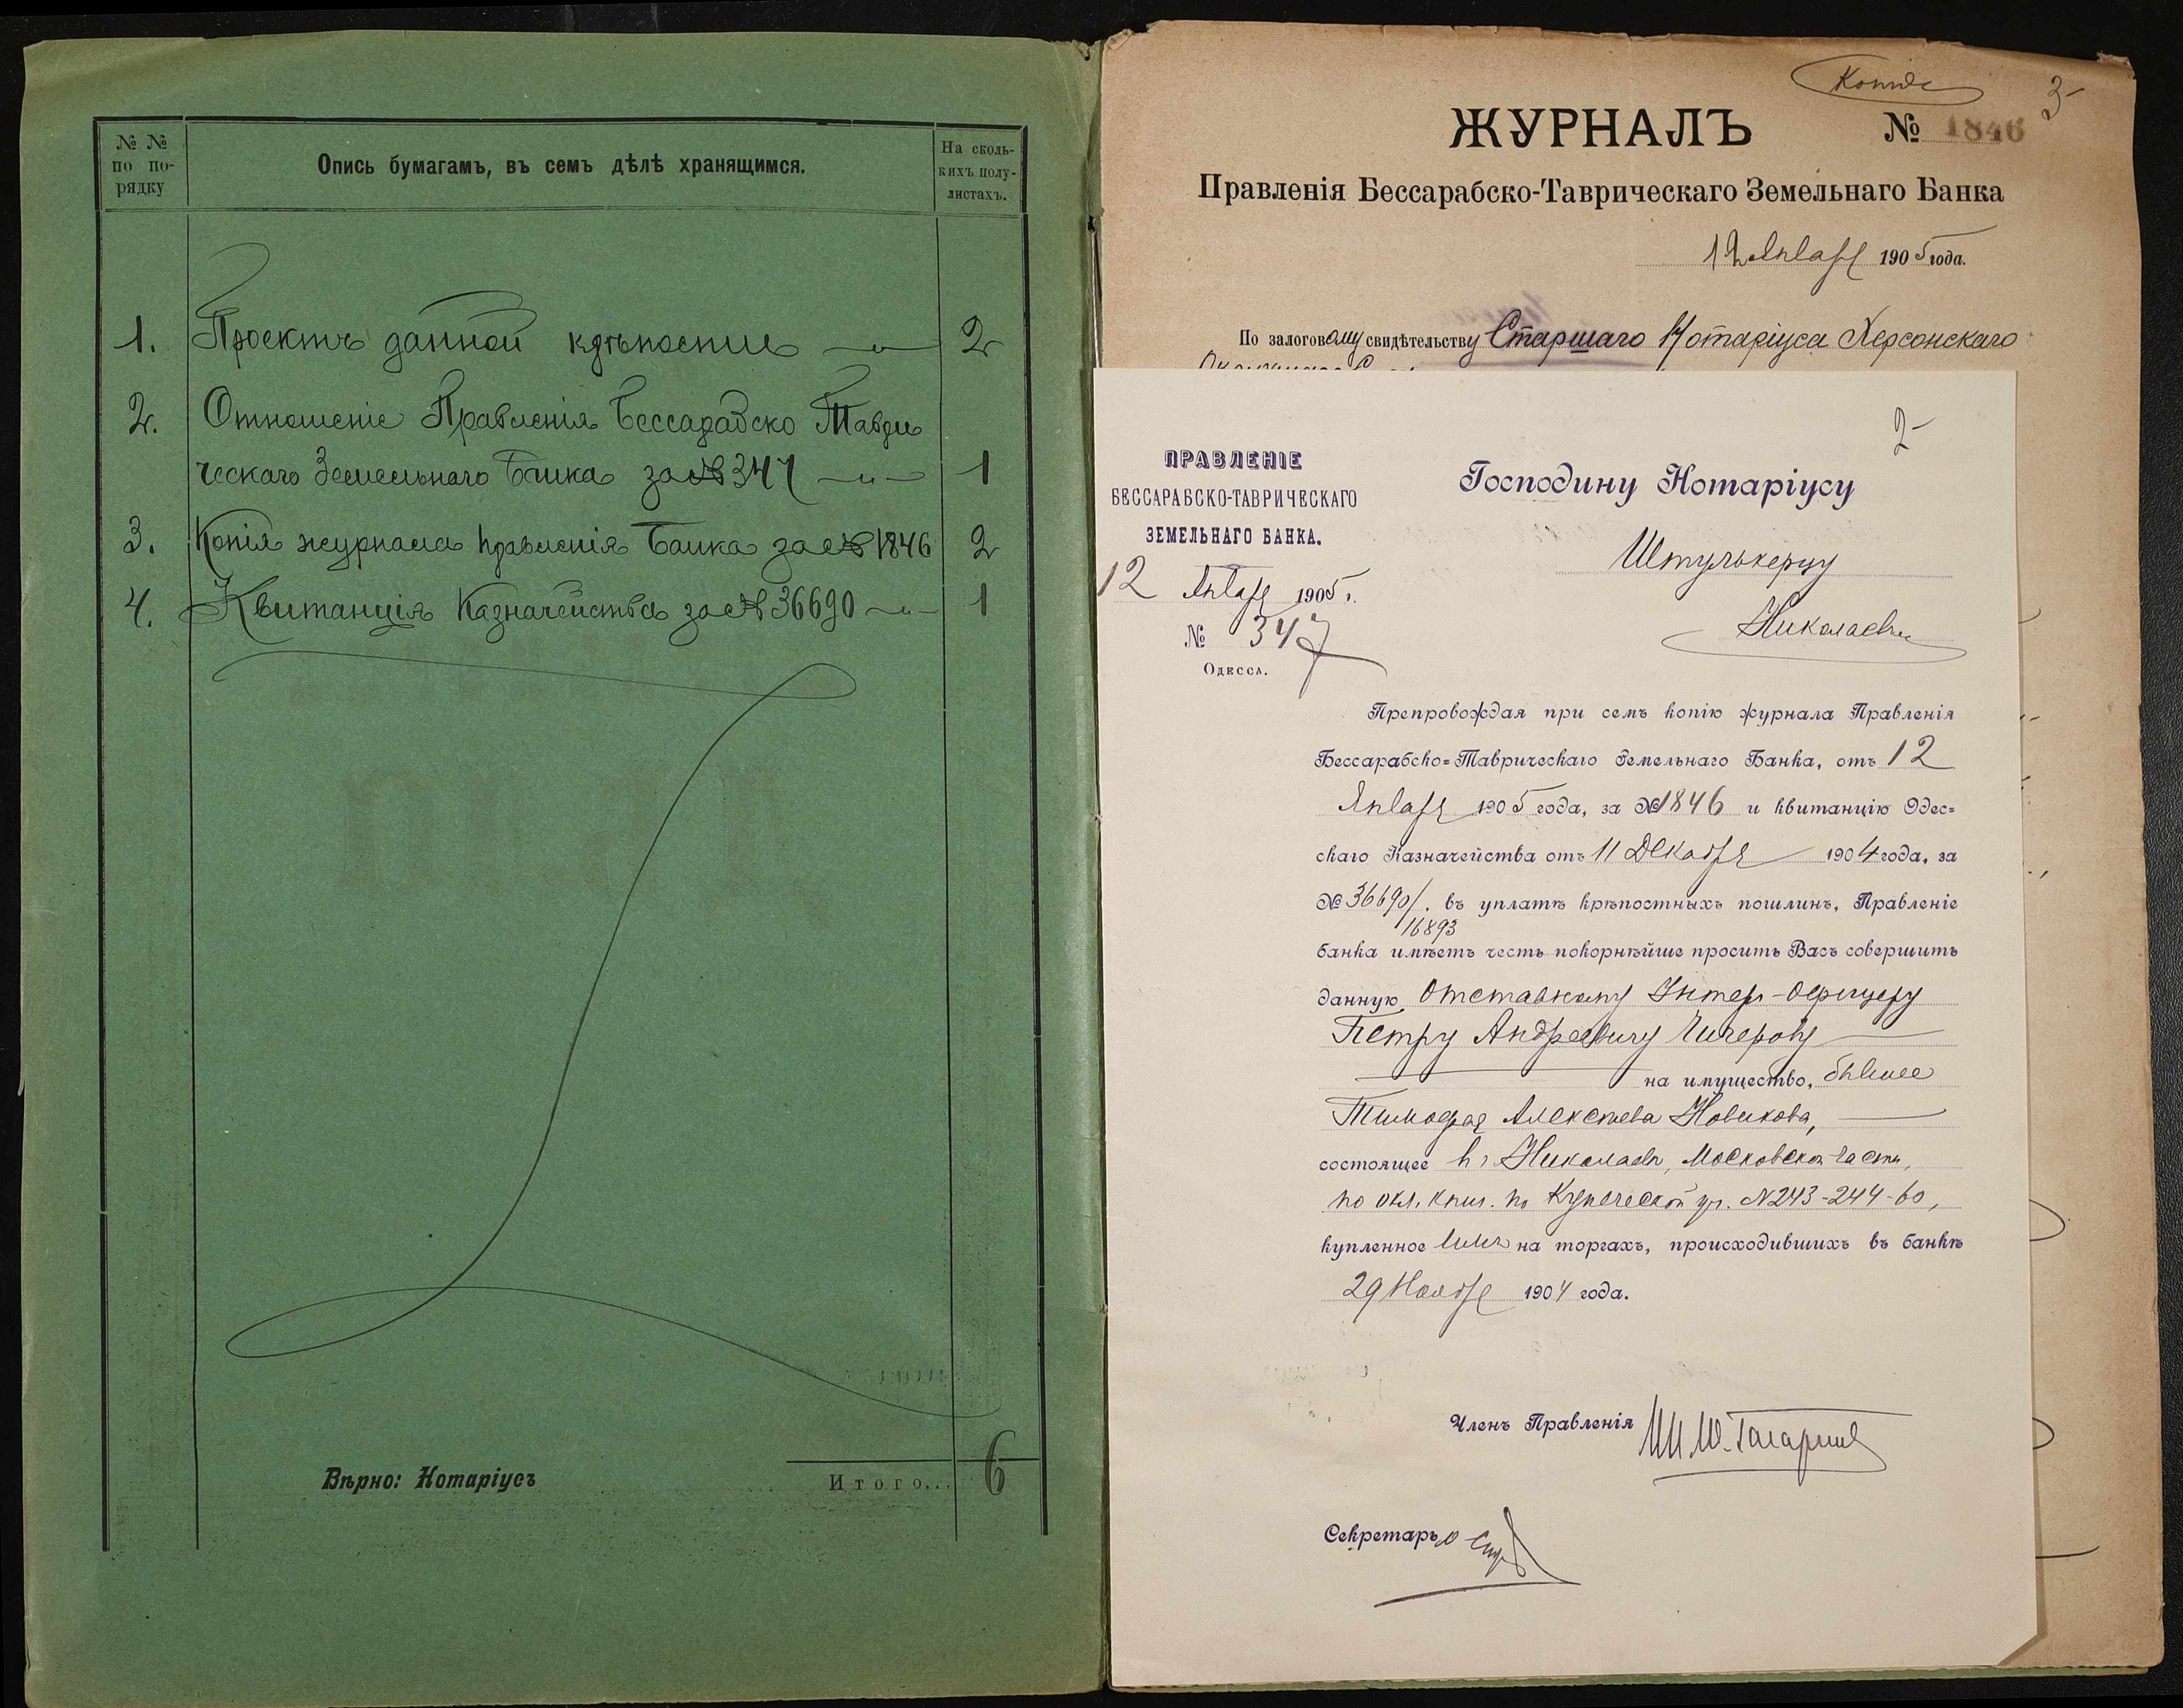 № №
по по-
рядку
Опись бумагамъ, въ семъ дѣлѣ хранящимся.
На сколь-
кихъ полу-
листахъ.
1. Проектъ данной крѣпостные 2
2. Отношеніе Правленія Бессарабско Таври
ческаго Земельнаго Банка за № 347 1
3. Копія журнала правленія Банка за № 1846 2
4. Квитанція Казначейства за № 36690 1
Вѣрно: Нотаріусъ
Итого... 6
Копія
3
ЖУРНАЛЪ № 1846
Правленія Бессарабско-Таврическаго Земельнаго Банка
12 Января 1905 года.
По залоговому свидѣтельству Старшаго Нотаріуса Херсонскаго
2
ПРАВЛЕНІЕ
БЕССАРАБСКО-ТАВРИЧЕСКАГО
ЗЕМЕЛЬНАГО БАНКА.
12 Января 1905 г.
№ 347
Одесса.
Господину Нотаріусу
Штулькерцу
Николаевъ
Препровождая при семъ копію журнала Правленія
Бессарабско=Таврическаго Земельнаго Банка, отъ 12
Января 1905 года, за № 1846 и квитанцію Одес=
скаго Казначейства отъ 11 Декабря 1904 года, за
№ 36690/16893. въ уплатѣ крѣпостныхъ пошлинъ, Правленіе
банка имѣетъ честь покорнѣйше просить Васъ совершить
данную Отставному Унтеръ-Офицеру
Петру Андреевичу Чичерову
на имущество, бывшее
Тимофея Алексѣева Новикова,
состоящее въ г. Николаевѣ, Московской части,
по окл. книг. по Купеческой ул. № 243-244-60,
купленное имъ на торгахъ, происходившихъ въ банкѣ
29 Ноября 1904 года.
Членъ Правленія
Секретарь